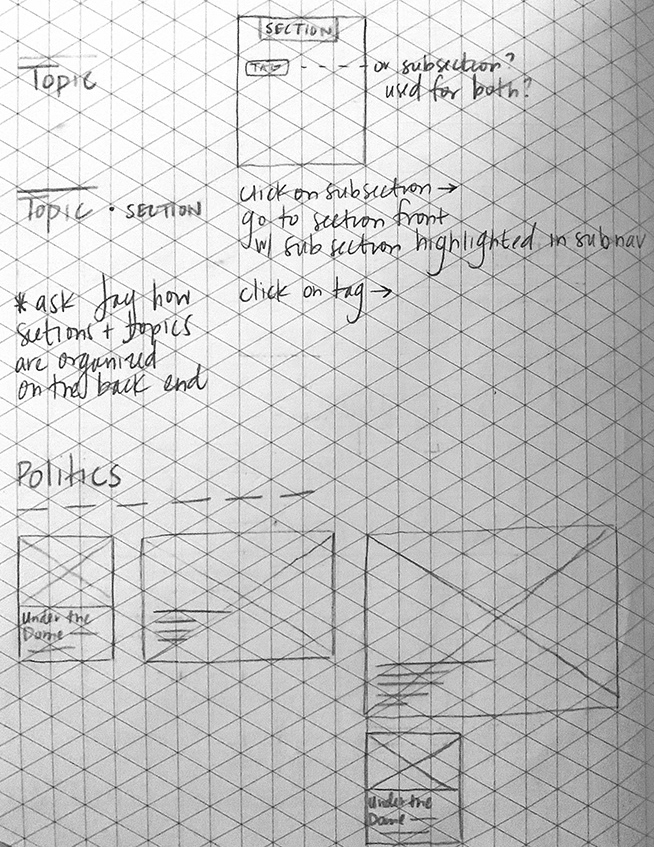 SECTION
TAG
or subsection?
used for both?
Topic
Topic • SECTION
click on subsection →
go to section front
w/ subsection highlighted in subnav
click on tag →
* ask Jay how
sections + topics
are organized
on the back end
Politics
Under the
Dome
Under the
Dome